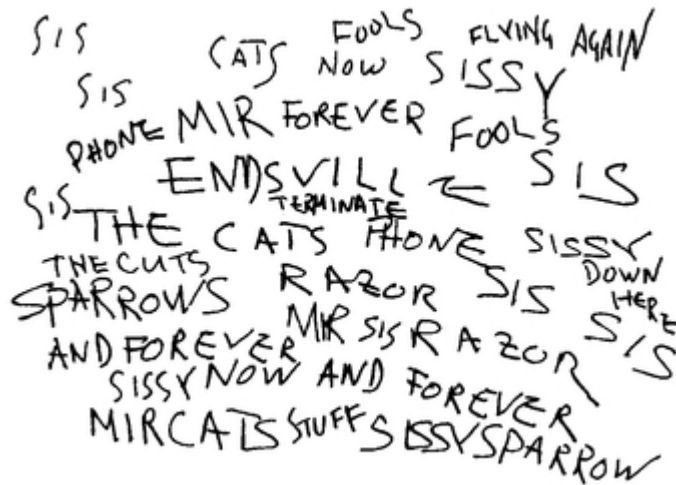 SIS CATS FOOLS FLYING AGAIN
SIS NOW SISSY
PHONE MIR FOREVER FOOLS
ENDSVILL SIS
SIS TERMINATE
THE CATS PHONE SISSY
THE CUTS RAZOR SIS DOWN
SPARROWS HERE
MIR SIS RAZOR SIS
AND FOREVER
SISSY NOW AND FOREVER
MIR CATS STUFF SISSY SPARROW